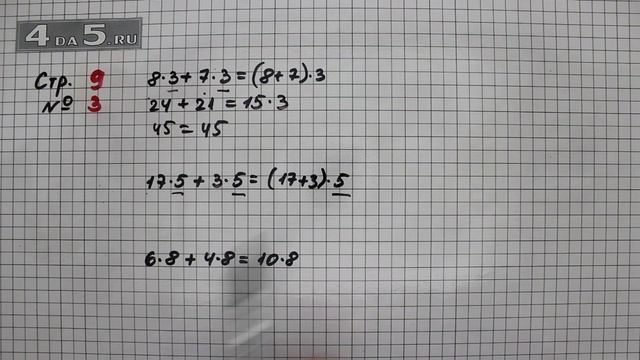 4 DA 5.RU
Стр. 9
№ 3
8·3+7·3=(8+7)·3
24+21=15·3
45=45
17·5+3·5=(17+3)·5
6·8+4·8=10·8